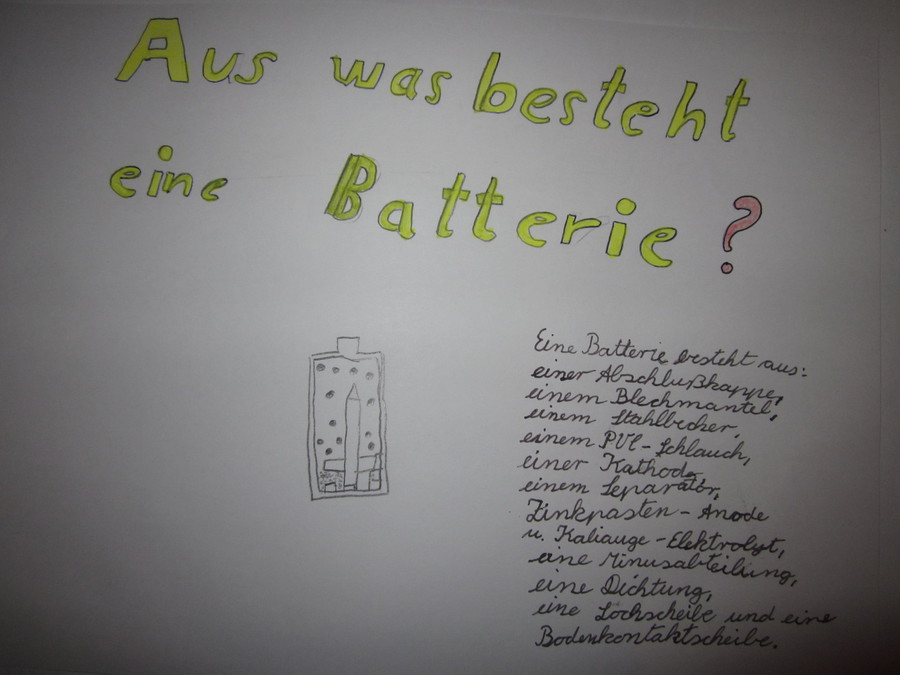 Aus was besteht
eine Batterie?
Eine Batterie besteht aus:
einer Abschlußkappe,
einem Blechmantel,
einem Stahlbecker,
einem PVC-Schlauch,
einer Kathode,
einem Separator,
Zinkpasten-Anode
u. Kaliauge-Elektrolyt,
eine Minusabteilung,
eine Dichtung,
eine Lochscheibe und eine
Bodenkontaktscheibe.